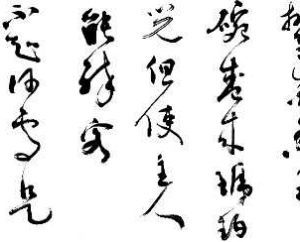 碗盛来琥珀
光但使主人
能醉客
不知何處是